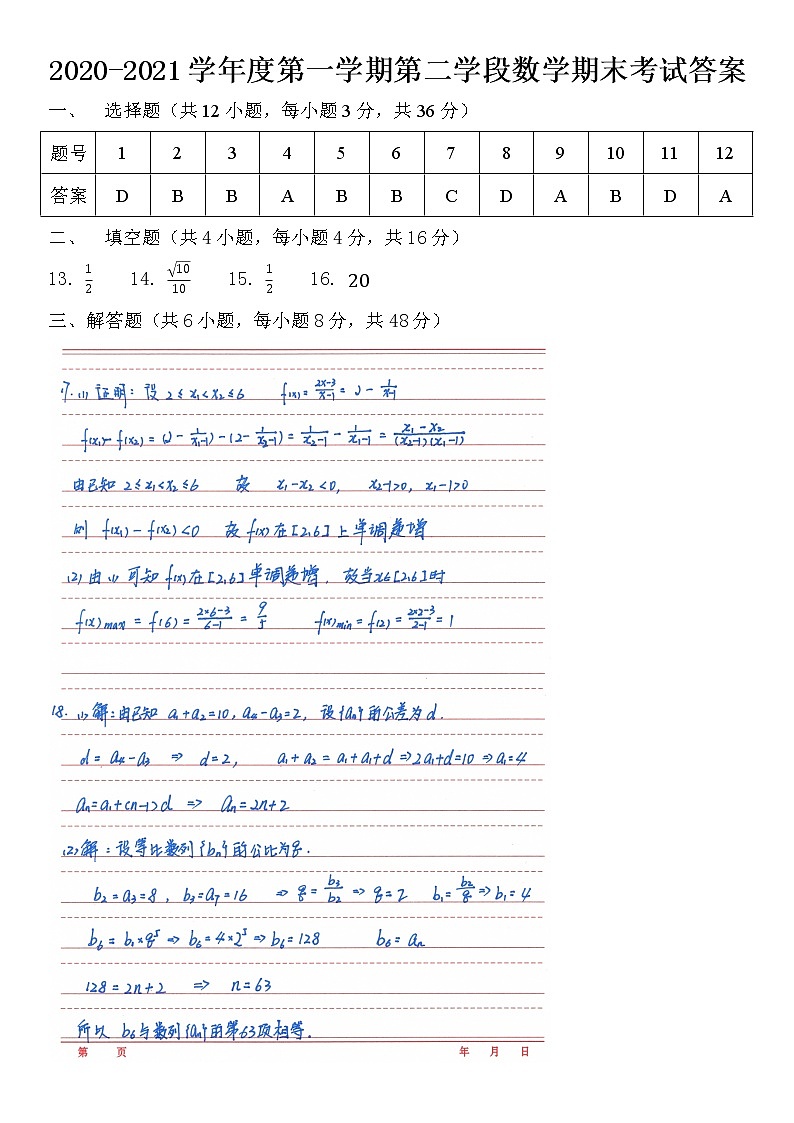 2020-2021学年度第一学期第二学段数学期末考试答案
一、 选择题（共12小题，每小题3分，共36分）
题号 1 2 3 4 5 6 7 8 9 10 11 12
答案 D B B A B B C D A B D A
二、 填空题（共4小题，每小题4分，共16分）
13. 1/2 14. √10/10 15. 1/2 16. 20
三、解答题（共6小题，每小题8分，共48分）
17.(1)证明：设 2≤x₁<x₂≤6 f(x)=(2x-3)/(x-1)=2-1/(x-1)
f(x₁)-f(x₂)=(2-1/(x₁-1))-(2-1/(x₂-1))=1/(x₂-1)-1/(x₁-1)=(x₁-x₂)/((x₂-1)(x₁-1))
由已知 2≤x₁<x₂≤6 故 x₁-x₂<0, x₂-1>0, x₁-1>0
则 f(x₁)-f(x₂)<0 故f(x)在[2,6]上单调递增
(2)由(1)可知f(x)在[2,6]单调递增，故当x∈[2,6]时
f(x)max=f(6)=(2×6-3)/(6-1)=9/5 f(x)min=f(2)=(2×2-3)/(2-1)=1
18.(1)解：由已知 a₁+a₂=10, a₄-a₃=2, 设{aₙ}的公差为d.
d=a₄-a₃ ⇒ d=2, a₁+a₂=a₁+a₁+d⇒2a₁+d=10⇒a₁=4
aₙ=a₁+(n-1)d ⇒ aₙ=2n+2
(2)解：设等比数列{bₙ}的公比为q.
b₂=a₃=8, b₃=a₇=16 ⇒ q=b₃/b₂ ⇒ q=2 b₁=b₂/q⇒b₁=4
b₆=b₁×q⁵⇒b₆=4×2⁵⇒b₆=128 b₆=aₙ
128=2n+2 ⇒ n=63
所以 b₆与数列{aₙ}的第63项相等.
第 页 年 月 日